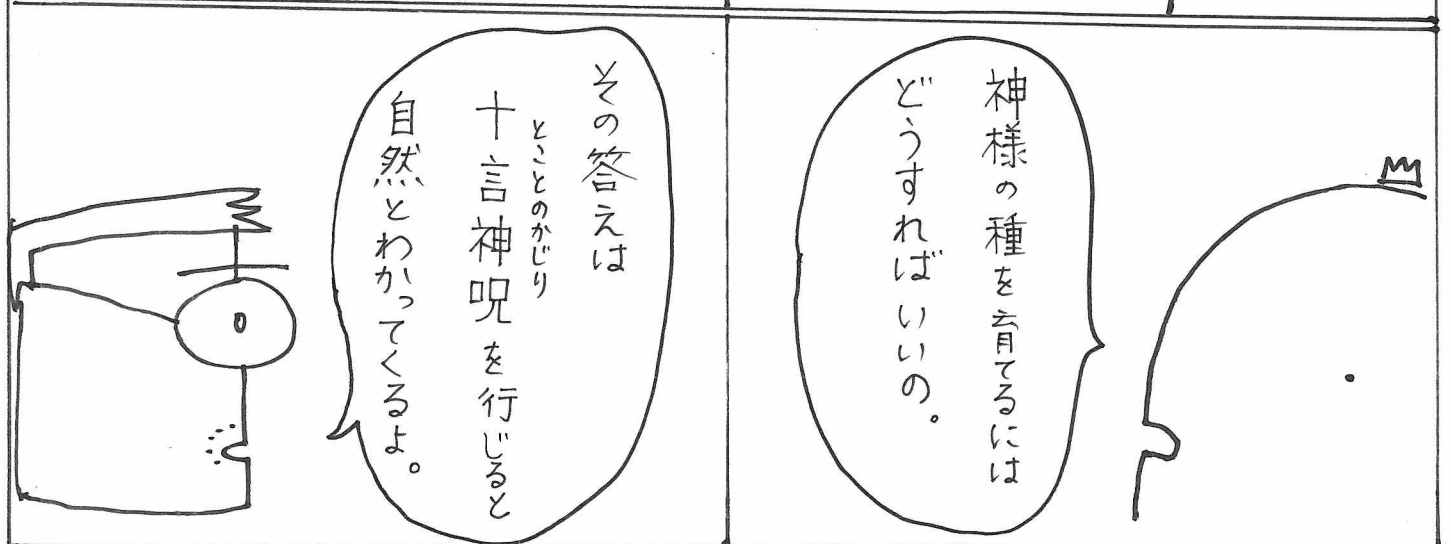 神様の種を育てるには
どうすればいいの。
その答えは
とことのかじり
十言神呪を行じると
自然とわかってくるよ。